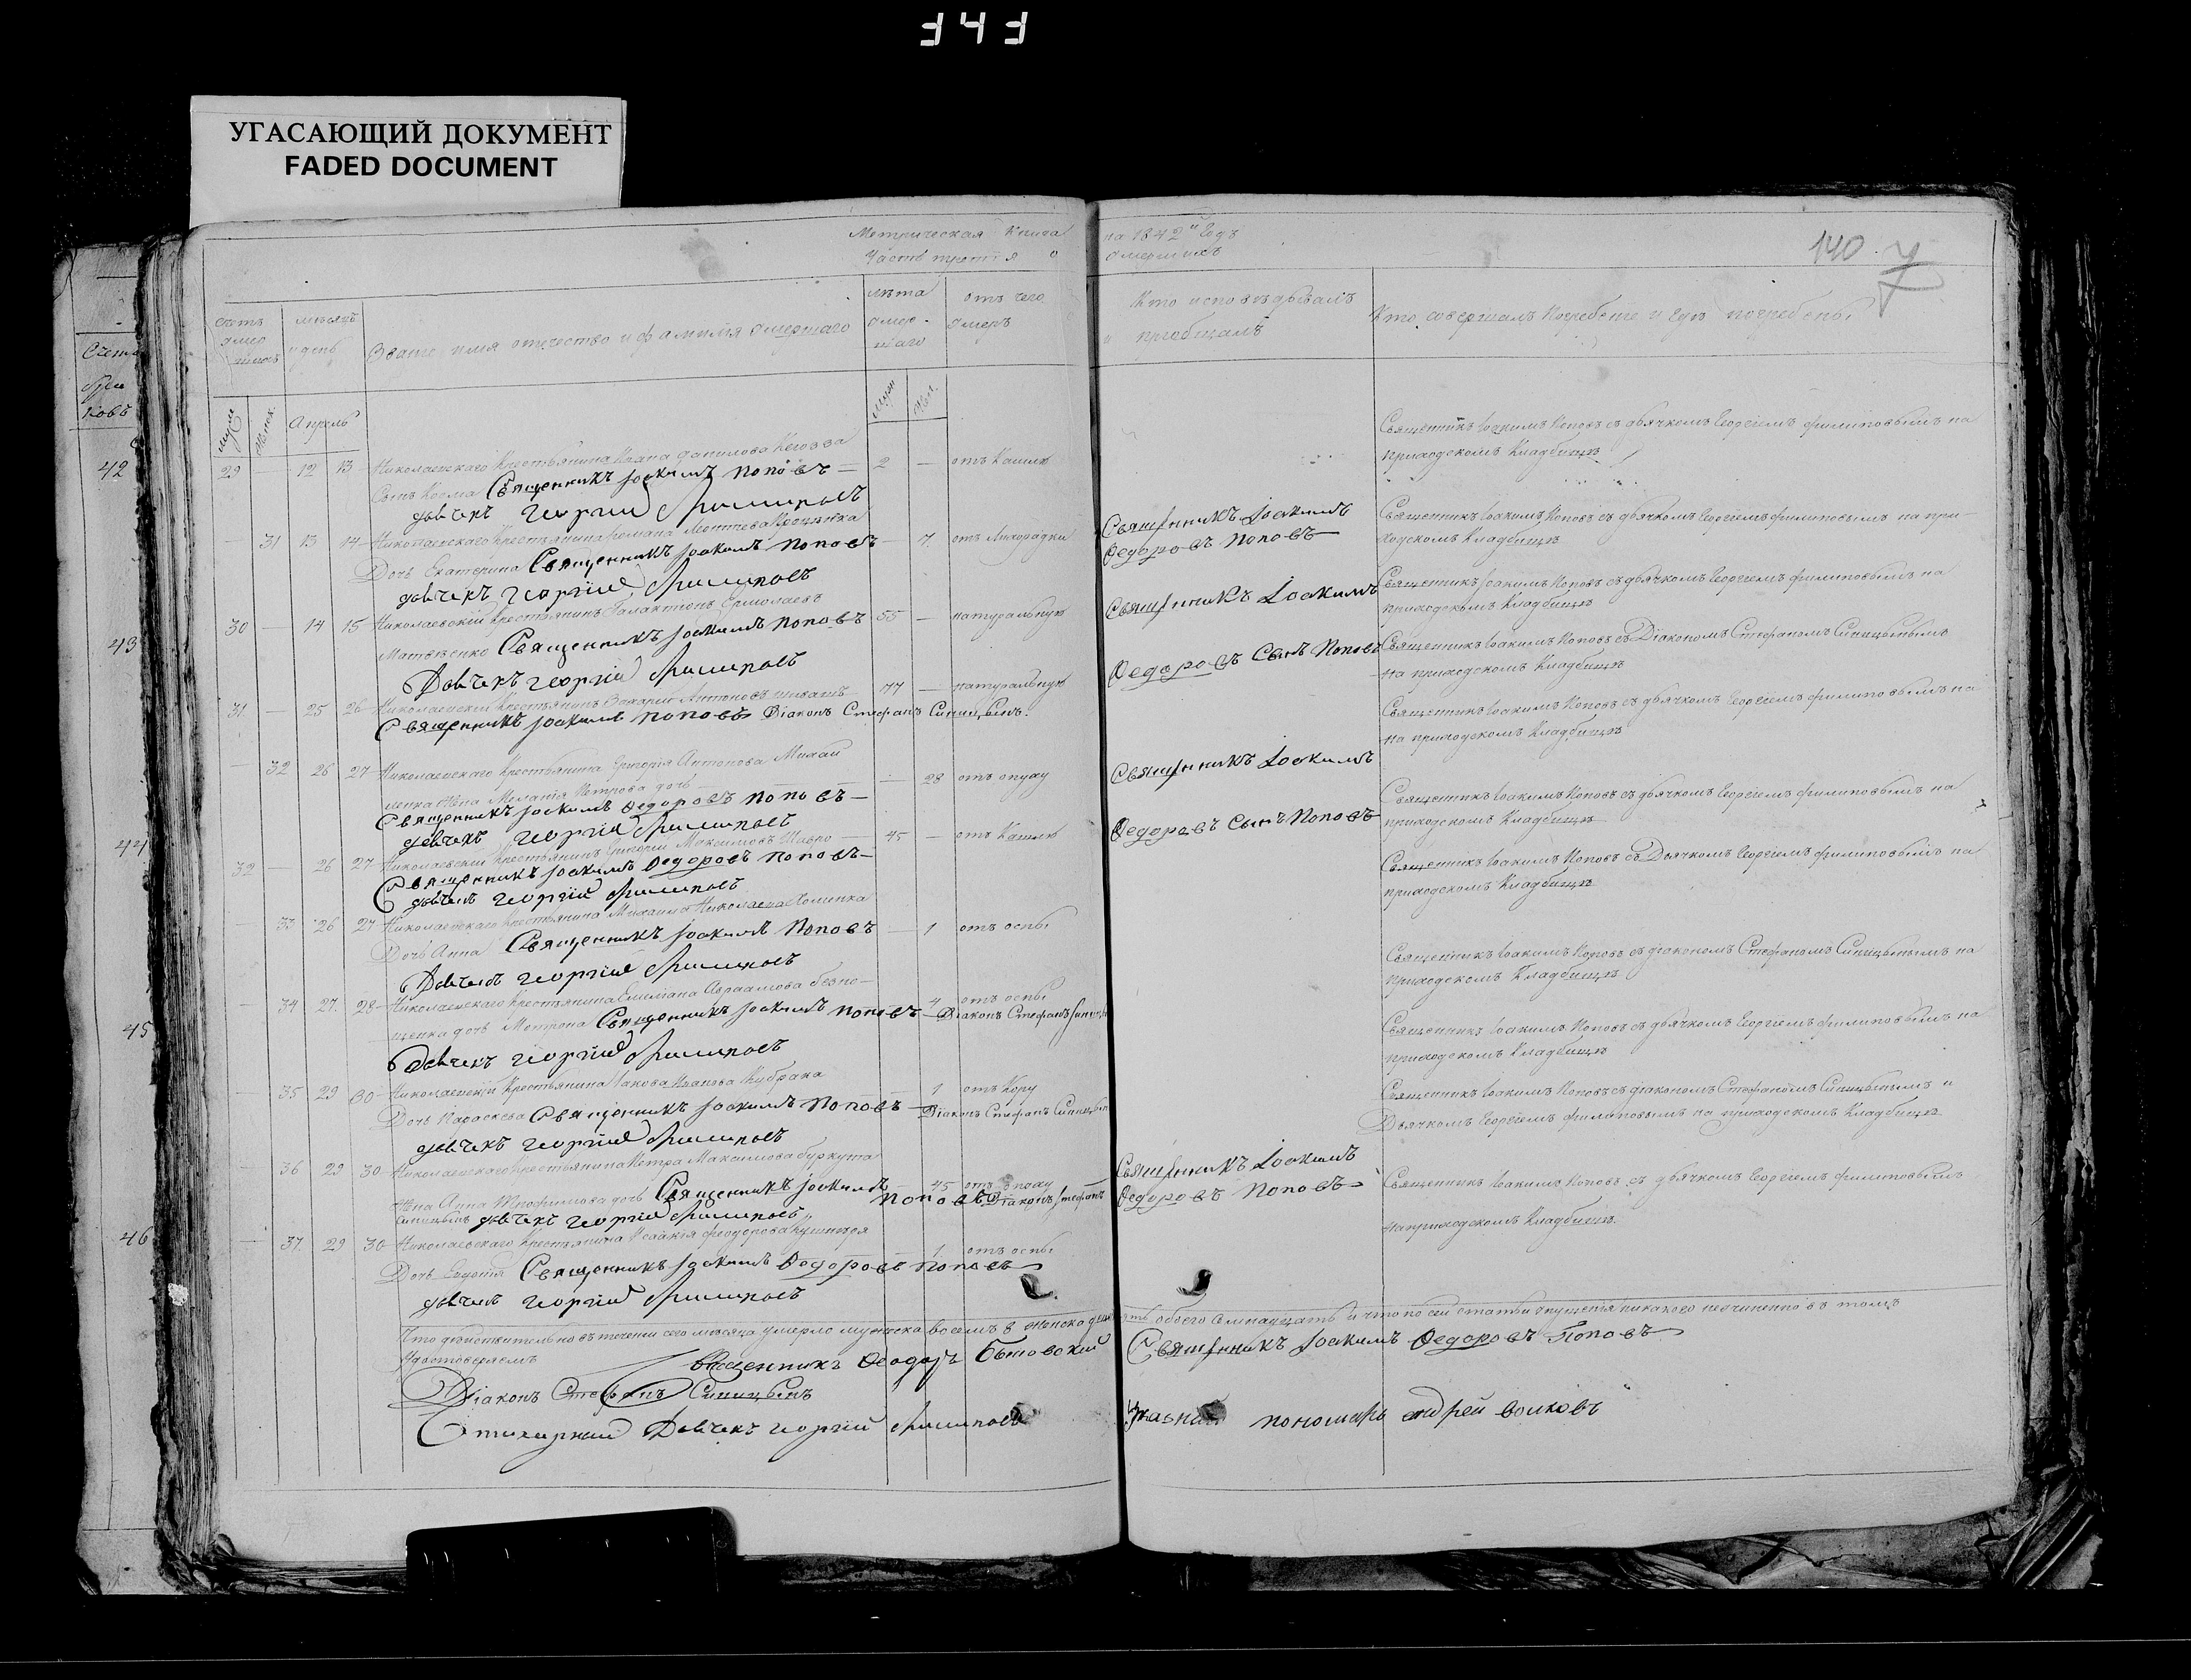 343
УГАСАЮЩИЙ ДОКУМЕНТ
FADED DOCUMENT
Метрическая Книга на 1842й Годъ
Часть третія о умершихъ
140
7
Счетъ умершихъ
мѣсяцъ и день
Званіе имя отечество и фамилія умершаго
лѣта умершаго
отъ чего умеръ
Кто исповѣдывалъ и пріобщалъ
Кто совершалъ погребеніе и гдѣ погребены
Апрель
29 — 12 13 Николаевскаго Крестьянина Ивана Данилова 2 — отъ Кашлю
Сынъ Косма Священникъ Іоакимъ Поповъ
дьячекъ Георгій Филиповъ
Священникъ Іоакимъ Поповъ съ дьячкомъ Георгіемъ Филиповымъ на
приходскомъ Кладбищѣ
— 31 13 14 Николаевскаго Крестьянина Романа — 7 отъ Лихорадки
Дочь Екатерина Священникъ Іоакимъ Поповъ
дьячекъ Георгій Филиповъ
Священникъ Іоакимъ
Федоровъ Поповъ
Священникъ Іоакимъ Поповъ съ дьячкомъ Георгіемъ Филиповымъ на при
ходскомъ Кладбищѣ
30 — 14 15 Николаевскій Крестьянинъ Галактіонъ Ермолаевъ 55 — натуральную
Матвѣенко Священникъ Іоакимъ Поповъ
Дьячекъ Георгій Филиповъ
Священникъ Іоакимъ
Федоровъ Сынъ Поповъ
Священникъ Іоакимъ Поповъ съ дьячкомъ Георгіемъ Филиповымъ на
приходскомъ Кладбищѣ
31 — 25 26 Николаевскій Крестьянинъ Захарій Антоновъ 77 — натуральную
Священникъ Іоакимъ Поповъ Діаконъ Стефанъ Синицынъ
Священникъ Іоакимъ Поповъ съ Діакономъ Стефаномъ Синицынымъ
на приходскомъ Кладбищѣ
— 32 26 27 Николаевскаго Крестьянина Григорія Антонова Михай — 28 отъ опуху
ленка жена Меланія Петрова дочь
Священникъ Іоакимъ Федоровъ Поповъ
дьячекъ Георгій Филиповъ
Священникъ Іоакимъ
Федоровъ Сынъ Поповъ
Священникъ Іоакимъ Поповъ съ дьячкомъ Георгіемъ Филиповымъ на
на приходскомъ Кладбищѣ
32 — 26 27 Николаевскій Крестьянинъ Григорій Максимовъ 45 — отъ Кашлю
Священникъ Іоакимъ Федоровъ Поповъ
дьячекъ Георгій Филиповъ
Священникъ Іоакимъ Поповъ съ дьячкомъ Георгіемъ Филиповымъ на
приходскомъ Кладбищѣ
— 33 26 27 Николаевскаго Крестьянина Михаила Николаева Хоменка — 1 отъ оспы
Дочь Анна Священникъ Іоакимъ Поповъ
Дьячекъ Георгій Филиповъ
Священникъ Іоакимъ Поповъ съ Дьячкомъ Георгіемъ Филиповымъ на
приходскомъ Кладбищѣ
— 34 27 28 Николаевскаго Крестьянина Емеліана Авраамова безпо — 4 отъ оспы
щенка дочь Матрона Священникъ Іоакимъ Поповъ Діаконъ Стефанъ
Дьячекъ Георгій Филиповъ
Священникъ Іоакимъ Поповъ съ діакономъ Стефаномъ Синицынымъ на
приходскомъ Кладбищѣ
— 35 29 30 Николаевскій Крестьянина Іакова Иванова Кибрака — 1 отъ Кору
Дочь Параскева Священникъ Іоакимъ Поповъ Діаконъ Стефанъ Синицынъ
дьячекъ Георгій Филиповъ
Священникъ Іоакимъ Поповъ съ дьячкомъ Георгіемъ Филиповымъ на
приходскомъ Кладбищѣ
— 36 29 30 Николаевскаго Крестьянина Петра Максимова Буркута — 45 отъ опуху
Жена Анна Трофимова дочь Священникъ Іоакимъ Поповъ Діаконъ Стефанъ
Синицынъ дьячекъ Георгій Филиповъ
Священникъ Іоакимъ
Федоровъ Поповъ
Священникъ Іоакимъ Поповъ съ діакономъ Стефаномъ Синицынымъ и
Дьячкомъ Георгіемъ Филиповымъ на приходскомъ Кладбищѣ
— 37 29 30 Николаевскаго Крестьянина Исаакія Феодорова Кушниря — 1 отъ оспы
Дочь Евдокія Священникъ Іоакимъ Федоровъ Поповъ
дьячекъ Георгій Филиповъ
Священникъ Іоакимъ Поповъ съ дьячкомъ Георгіемъ Филиповымъ
на приходскомъ Кладбищѣ
Что дѣйствительно въ теченіи сего мѣсяца умерло мужеска восемъ 8 женска обоего семнадцать и что по сей статьи упущенія никакого неучиненно въ томъ
Удостоверяемъ
Священникъ Феодоръ Бытовскій Священникъ Іоакимъ Федоровъ Поповъ
Діаконъ Стефанъ Синицынъ
Стихарный Дьячекъ Георгій Филиповъ пономарь Андрей Волковъ
42
43
44
45
46